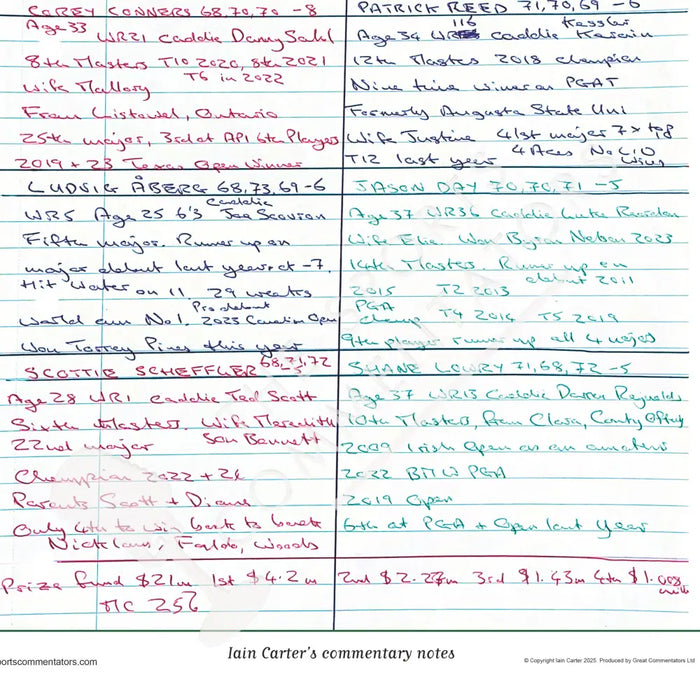 COREY CONNERS 68,70,70 -8
Age 33 WR21 Caddie Danny Sahl
8th Masters T10 2020, 8th 2021
T6 in 2022
Wife Mallory
From Listowel, Ontario
25th major, 3rd at API 6th Players
2019 + 23 Texas Open Winner
PATRICK REED 71,70,69 -6
Age 34 WR 116 caddie Kessler Karain
12th Masters 2018 champion
Nine time winner on PGAT
Formerly Augusta State Uni
Wife Justine 41st major 7 x top
T12 last year 4 Aces No LIV
wins
LUDVIG ÅBERG 68,73,69 -6
WR5 Age 25 6'3 Caddie Joe Skovron
Fifth major. Runner up on
major debut last year at -7.
Hit water on 11. 29 weeks
World am No 1. Pro debut 2023 Canadian Open
Won Torrey Pines this year
JASON DAY 70,70,71 -5
Age 37 WR36 Caddie Luke Reardon
Wife Ellie. Won Byron Nelson 2023
14th Masters Runner up on
debut 2011
2015 PGA Champ T2 2013
T4 2016 T5 2019
9th player runner up all 4 majors
SCOTTIE SCHEFFLER 68,71,72
Age 28 WR1 Caddie Ted Scott
Sixth Masters. Wife Meredith
22nd major Son Bennett
Champion 2022 + 24
Parents Scott + Diane
Only 4th to win back to back
Nicklaus, Faldo, Woods
SHANE LOWRY 71,68,72 -5
Age 37 WR13 Caddie Darren Reynolds
10th Masters, from Clara, County Offaly
2009 Irish Open as an amateur
2022 BMW PGA
2019 Open
6th at PGA + Open last year
Prize fund $21m 1st $4.2m 2nd $2.27m 3rd $1.43m 4th $1.008
mill
MC 25G
Iain Carter's commentary notes
portscommentators.com
© Copyright Iain Carter 2025. Produced by Great Commentators Ltd